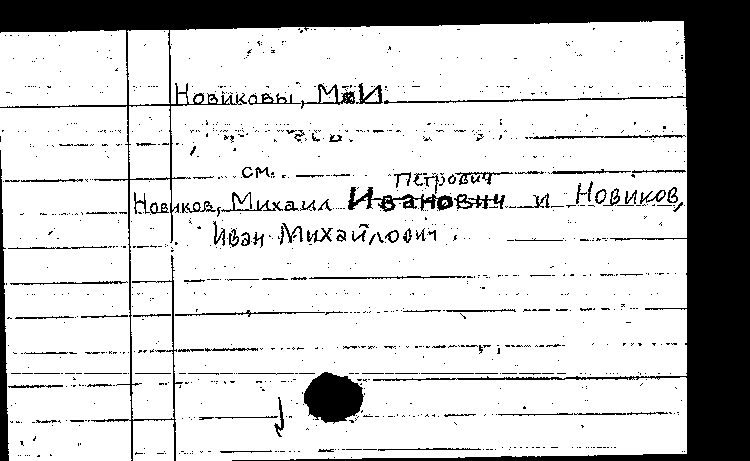 Новиковы, М.и И.
см.
Петрович
Новиков, Михаил Иванович и Новиков,
Иван Михайлович.